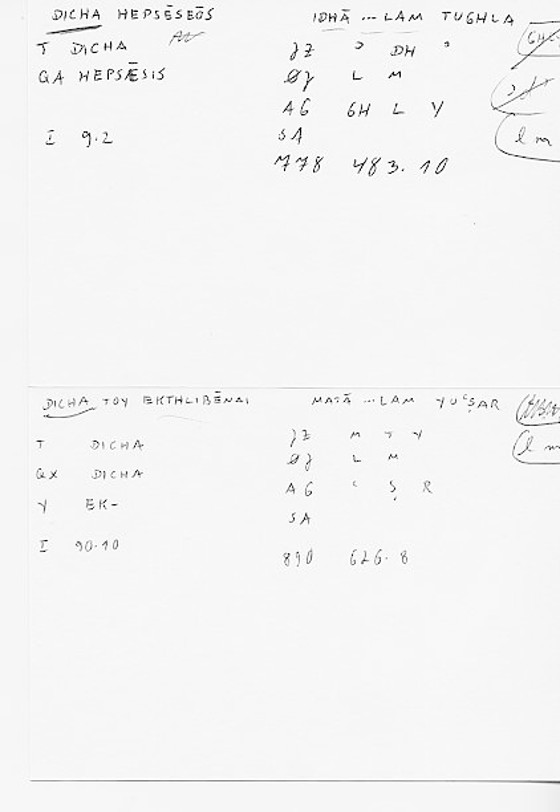 DICHA HEPSĒSEŌS IDHĀ ... LAM TUGHLA
T DICHA ʾ DH ʾ
QA HEPSÆSIS L M
AG GH L Y
I 9.2 SA
778 483.10
l m
DICHA TOY EKTHLIBĒNAI MATĀ ... LAM YUʿṢAR
T DICHA M T Y
QX DICHA L M l m
Y EK- AG ʿ Ṣ R
SA
I 90.10 890 626.8